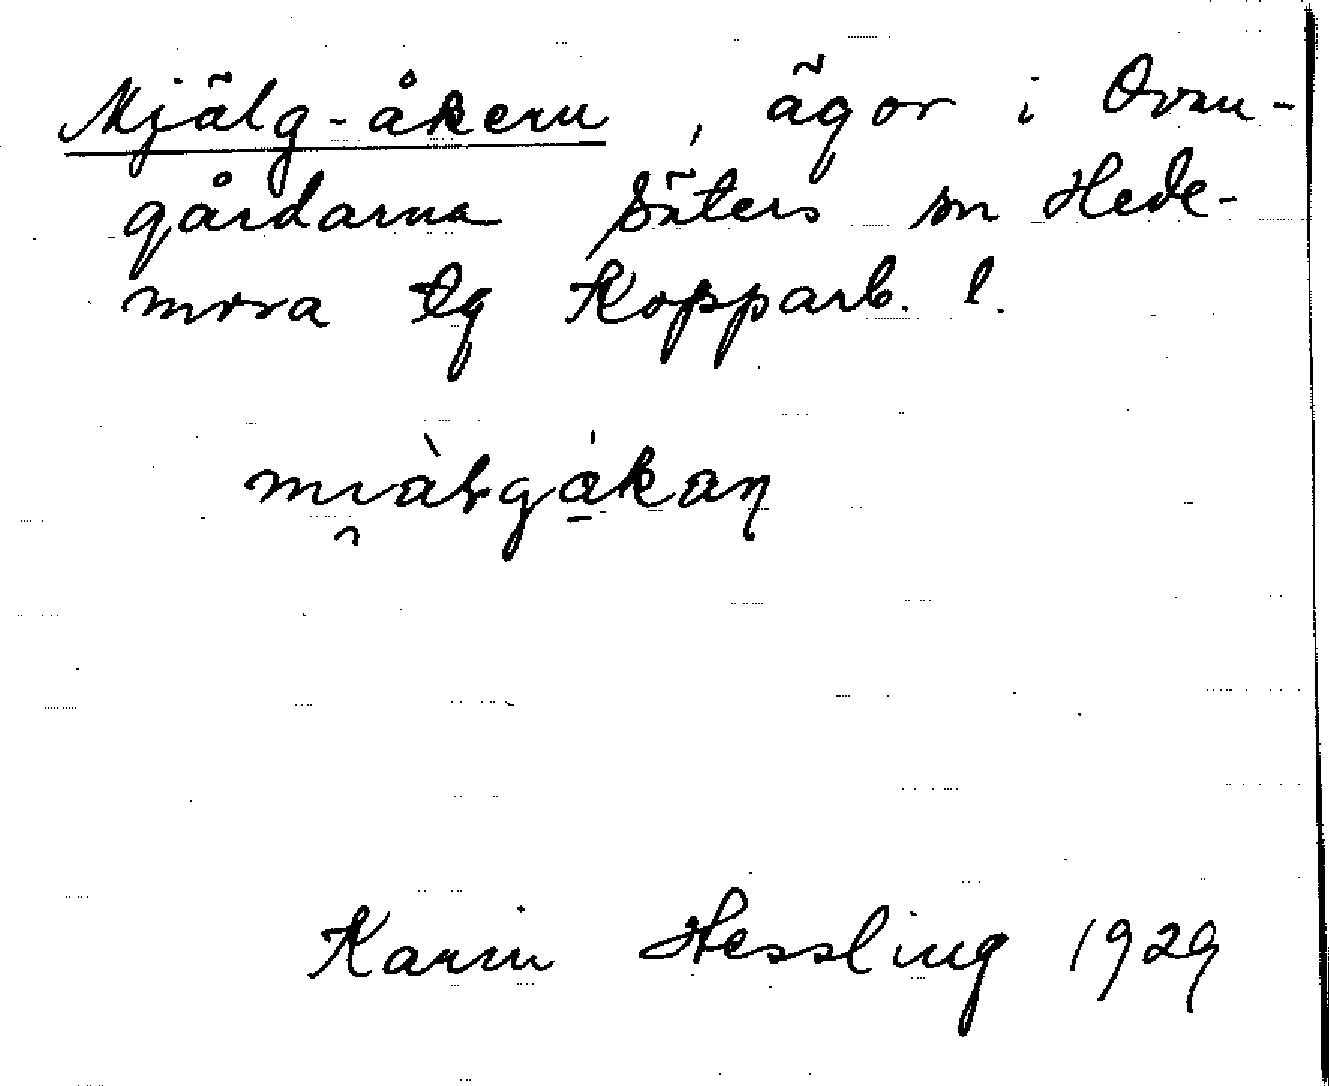 Mjälg-åkern, ägor i Ovan-
gårdarna Säters sn Hede-
mora tg Kopparb. l.
Karin Hessling 1929